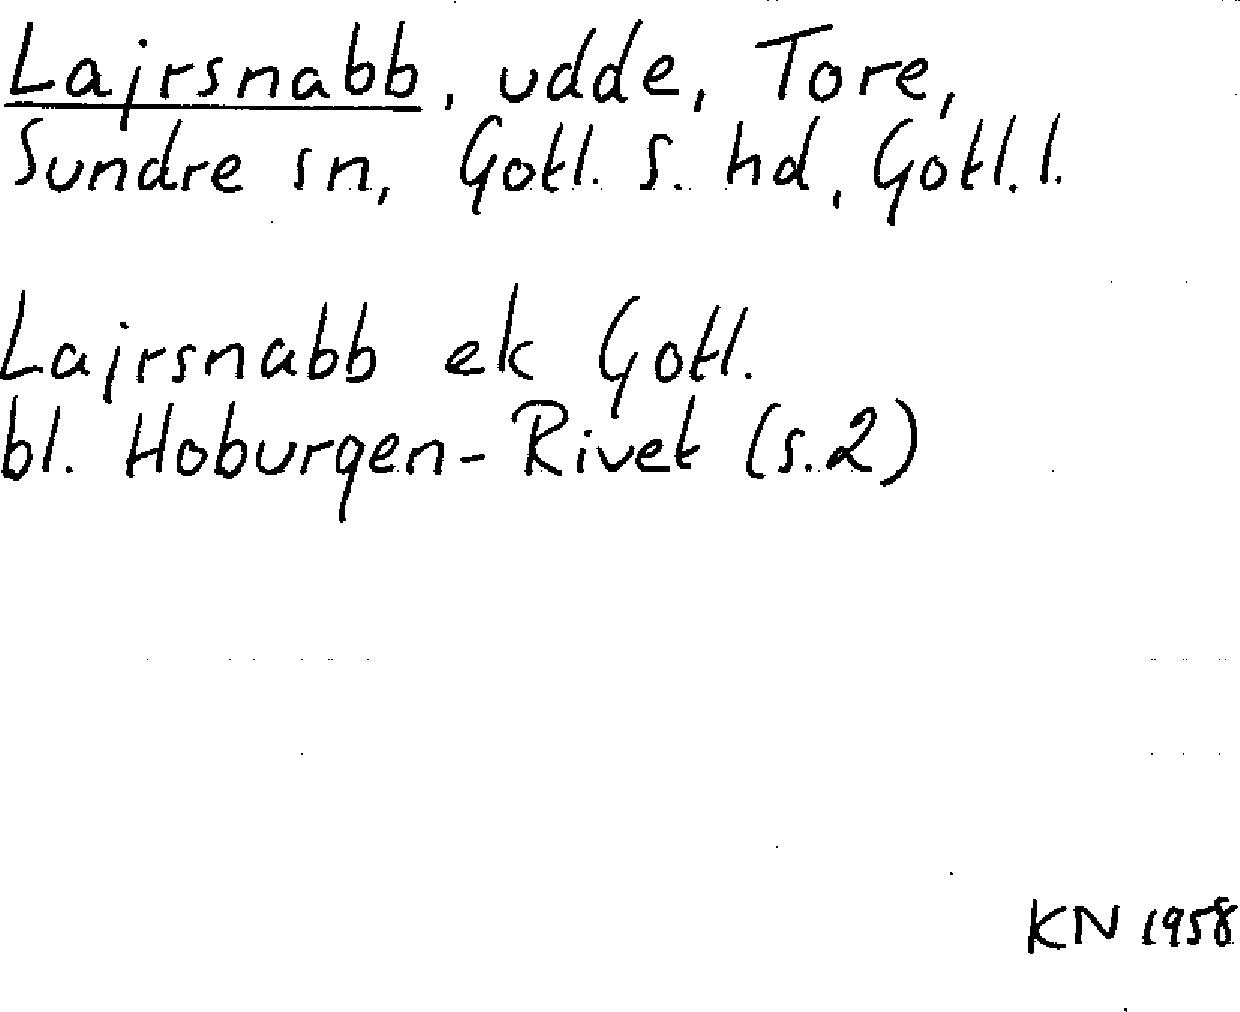 Lajrsnabb, udde, Tore,
Sundre sn, Gotl. S. hd, Gotl. l.
Lajrsnabb ek Gotl.
bl. Hoburgen-Rivet (s. 2)
KN 1958